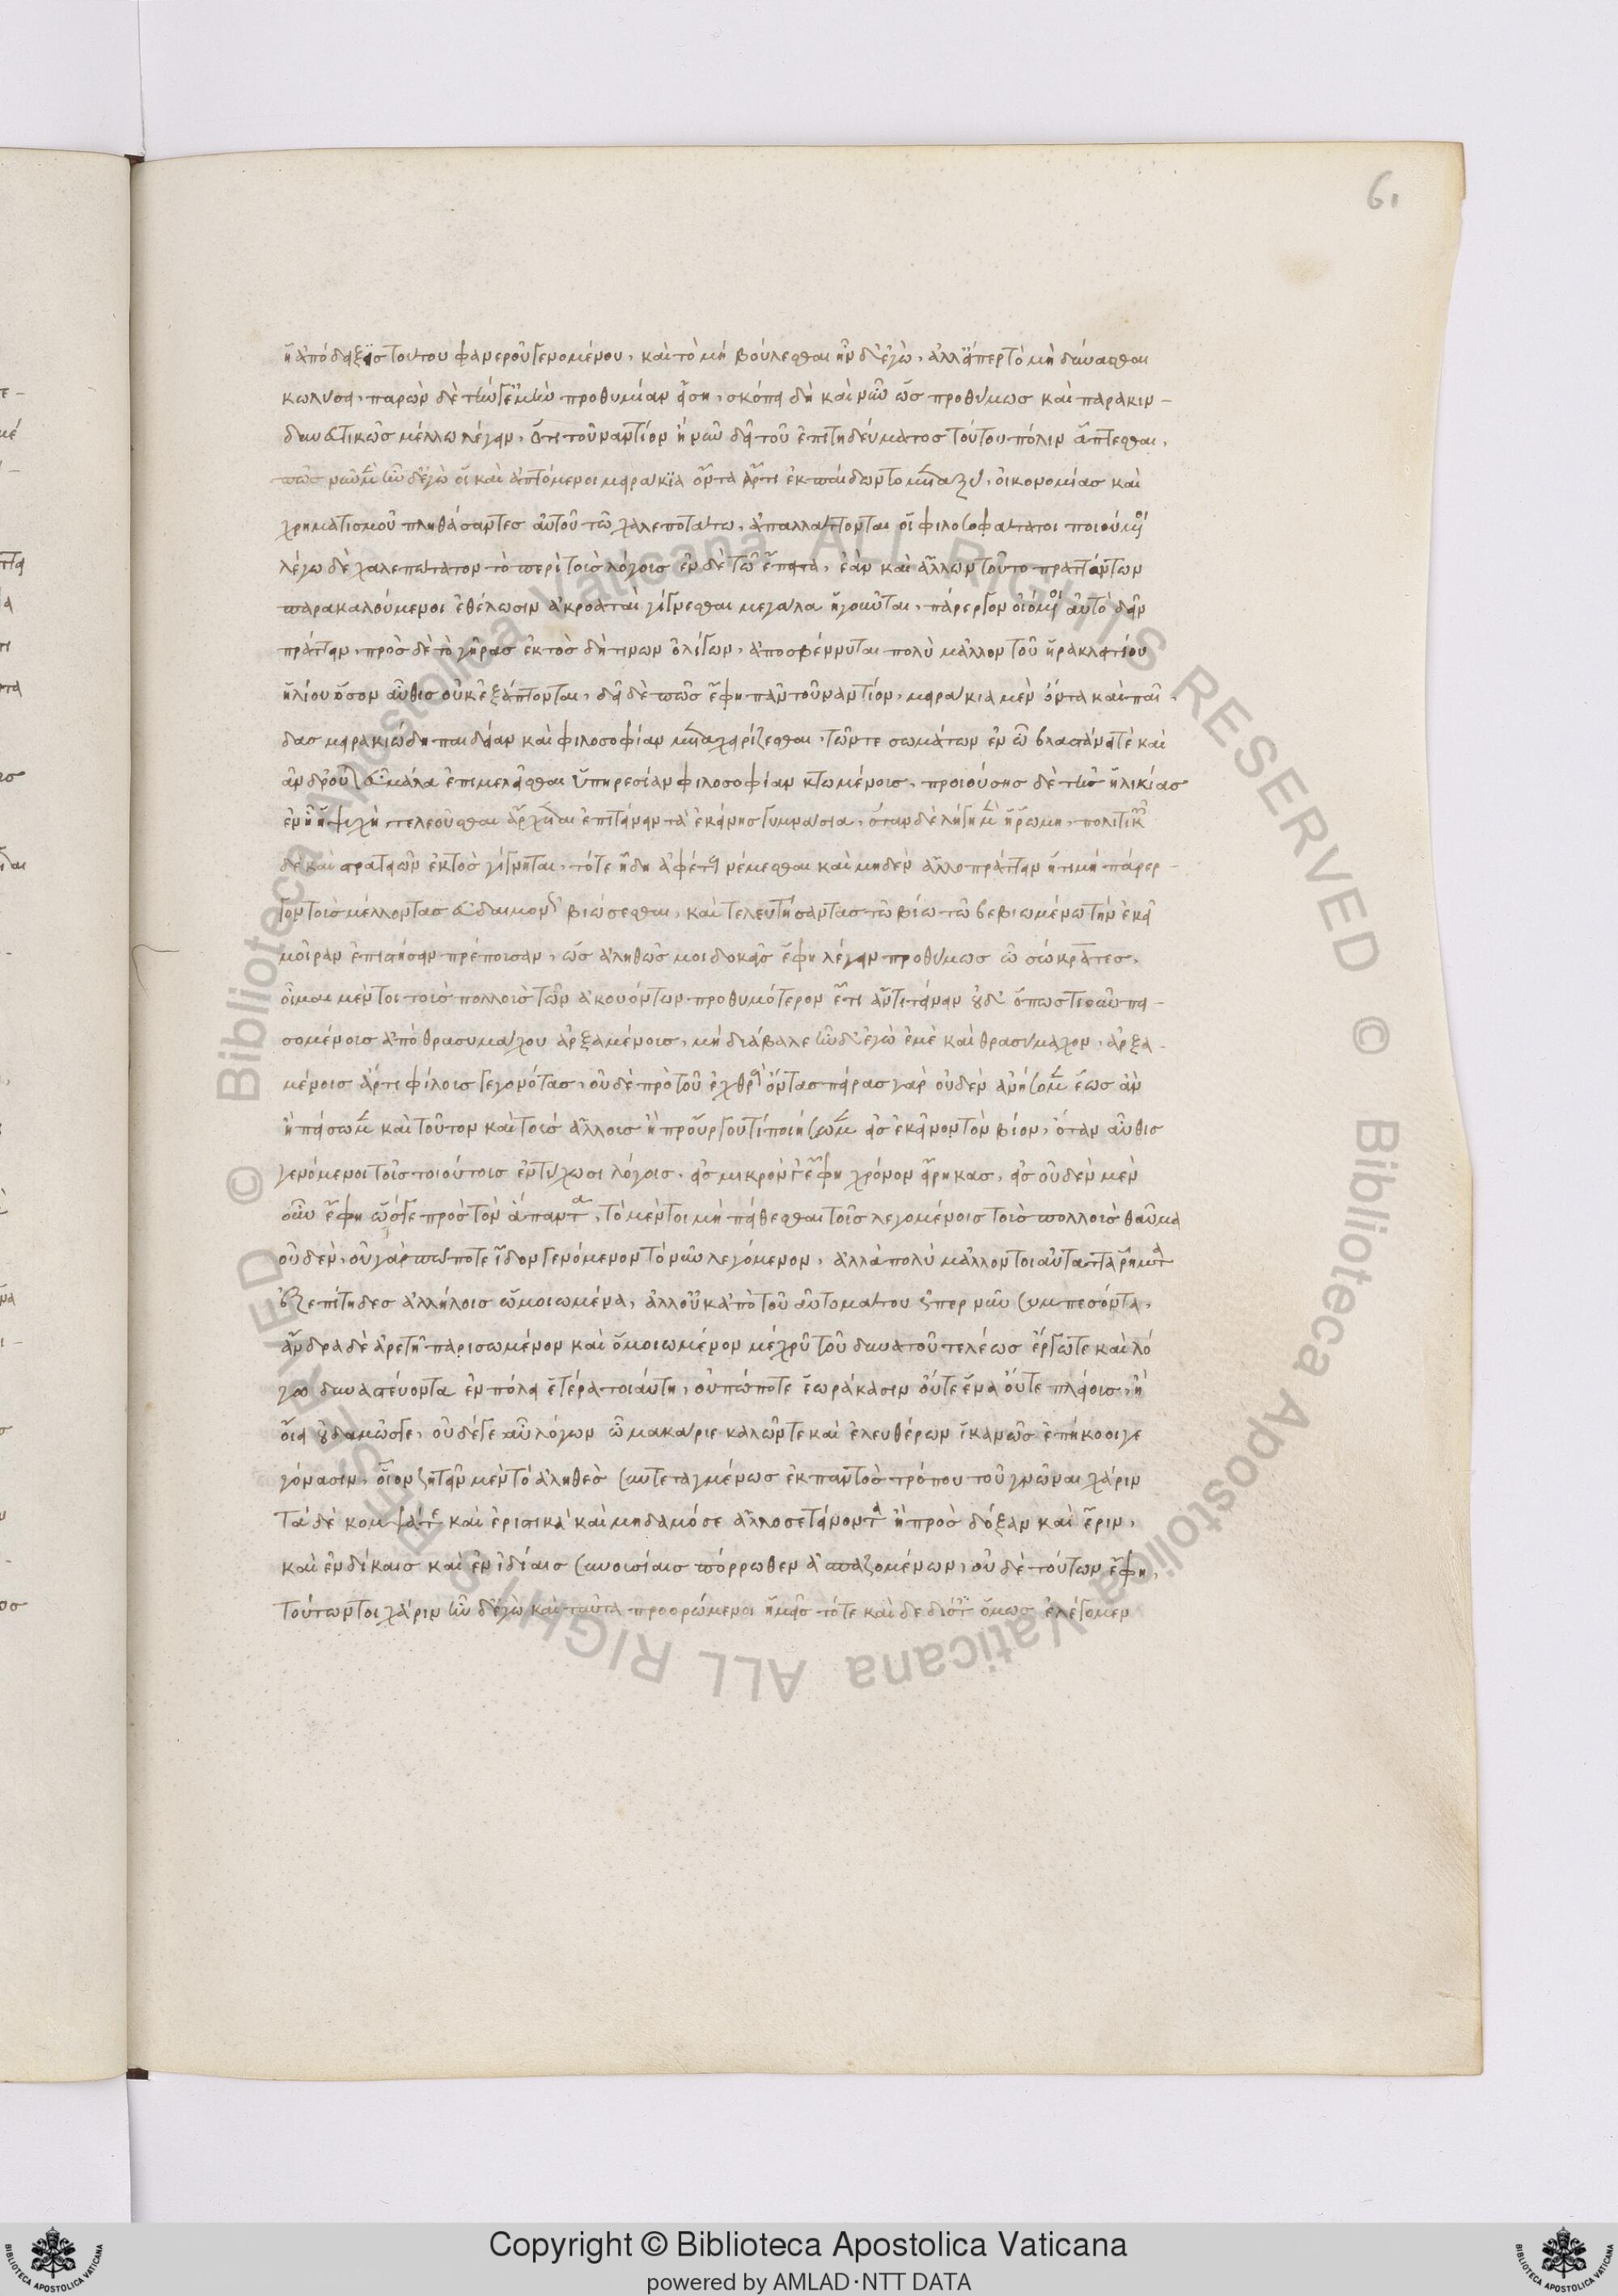 61
ἡ ἀπόδειξις τούτου φανεροῦ γενομένου, καὶ τὸ μὴ βούλεσθαι ἦν δ' ἐγὼ, ἀλλ' εἴπερ τὸ μὴ δύνασθαι
κωλύσει, παρὼν δὲ τήν γ' ἐμὴν προθυμίαν εἴση, σκόπει δὴ καὶ νῦν ὡς προθύμως καὶ παρακιν-
δυνευτικῶς μέλλω λέγειν, ὅτι τοὐναντίον ἢ νῦν δεῖ τοῦ ἐπιτηδεύματος τούτου πόλιν ἅπτεσθαι,
πῶς νῦν μὲν ἦν δ' ἐγὼ οἱ καὶ ἁπτόμενοι μειράκια ὄντα ἄρτι ἐκ παίδων τὸ μεταξὺ, οἰκονομίας καὶ
χρηματισμοῦ πληθάσαντες αὐτοῦ τῶ χαλεποτάτω, ἀπαλλάττονται οἱ φιλοσοφώτατοι ποιούμενοι
λέγω δὲ χαλεπώτατον τὸ περὶ τοὺς λόγους ἐν δὲ τῶ ἔπειτα, ἐὰν καὶ ἄλλων τοῦτο πραττόντων
παρακαλούμενοι ἐθέλωσιν ἀκροαταὶ γίγνεσθαι μεγάλα ἡγοῦνται, πάρεργον οἰόμενοι αὐτὸ δεῖν
πράττειν, πρὸς δὲ τὸ γῆρας ἐκτὸς δή τινων ὀλίγων, ἀποσβέννυται πολὺ μᾶλλον τοῦ ἡρακλειτείου
ἡλίου ὅσον αὖθις οὐκ ἐξάπτονται, δεῖ δὲ πῶς ἔφη πᾶν τοὐναντίον, μειράκια μὲν ὄντα καὶ παῖ-
δας μειρακιώδη παιδείαν καὶ φιλοσοφίαν μεταχειρίζεσθαι, τῶν τε σωμάτων ἐν ὧ βλαστάνει τὲ καὶ
ἀνδροῦται εὖ μάλα ἐπιμελεῖσθαι ὑπηρεσίαν φιλοσοφίαν κτωμένοις, προιούσης δὲ τῆς ἡλικίας
ἐν ἧ ἡ ψυχὴ τελεοῦσθαι ἄρχεται ἐπιτείνειν τὰ ἐκείνης γυμνάσια, ὅταν δὲ λήγη μὲν ἡ ῥώμη, πολιτικῶν
δὲ καὶ στρατειῶν ἐκτὸς γίγνηται, τότε ἤδη ἀφέτους νέμεσθαι καὶ μηδὲν ἄλλο πράττειν ὅτι μὴ πάρερ-
γον τοὺς μέλλοντας εὐδαιμόνως βιώσεσθαι, καὶ τελευτήσαντας τῶ βίω τῶ βεβιωμένω τὴν ἐκεῖ
μοῖραν ἐπιστήσειν πρέπουσαν, ὡς ἀληθῶς μοι δοκεῖς ἔφη λέγειν προθύμως ὦ σώκρατες,
οἶμαι μέντοι τοὺς πολλοὺς τῶν ἀκουόντων προθυμότερον ἔτι ἀντιτείνειν οὐδ' ὁπωστιοῦν πει-
σομένους ἀπὸ θρασυμάχου ἀρξαμένους, μὴ διάβαλε ἦν δ' ἐγὼ ἐμὲ καὶ θρασύμαχον, ἀρξα-
μένους ἄρτι φίλους γεγονότας, οὐδὲ πρὸ τοῦ ἐχθροὺς ὄντας πείρας γὰρ οὐδὲν ἀνήσομεν ἕως ἂν
ἢ πείσωμεν καὶ τοῦτον καὶ τοὺς ἄλλους ἢ προὔργου τί ποιήσωμεν εἰς ἐκεῖνον τὸν βίον, ὅταν αὖθις
γενόμενοι τοῖς τοιούτοις ἐντύχωσι λόγοις, εἰς μικρόν γ' ἔφη χρόνον εἴρηκας, εἰς οὐδὲν μὲν
οὖν ἔφη ὥς γε πρὸς τὸν ἅπαντα, τὸ μέντοι μὴ πείθεσθαι τοῖς λεγομένοις τοὺς πολλοὺς θαῦμα
οὐδὲν, οὐ γὰρ πώποτε εἶδον γενόμενον τὸ νῦν λεγόμενον, ἀλλὰ πολὺ μᾶλλον τοιαῦτ' ἄττα ῥήματα
ἐξεπίτηδες ἀλλήλοις ὡμοιωμένα, ἀλλ' οὐκ ἀπὸ τοῦ αὐτομάτου ὥσπερ νῦν συμπεσόντα,
ἄνδρα δὲ ἀρετῆ παρισωμένον καὶ ὁμοιωμένον μέχρι τοῦ δυνατοῦ τελέως ἔργω τε καὶ λό
γω δυναστεύοντα ἐν πόλει ἑτέρα τοιαύτη, οὐπώποτε ἑωράκασιν οὔτε ἕνα οὔτε πλείους, ἢ
οἴει οὐδαμῶς γε, οὐδέ γε αὖ λόγων ὦ μακάριε καλῶν τε καὶ ἐλευθέρων ἱκανῶς ἐπήκοοι γε
γόνασιν, οἵων ζητεῖν μὲν τὸ ἀληθὲς συντεταγμένως ἐκ παντὸς τρόπου τοῦ γνῶναι χάριν
τὰ δὲ κομψά τε καὶ ἐριστικὰ καὶ μηδαμόσε ἄλλοσε τείνοντα ἢ πρὸς δόξαν καὶ ἔριν,
καὶ ἐν δίκαις καὶ ἐν ἰδίαις συνουσίαις πόρρωθεν ἀσπαζομένων, οὐδὲ τούτων ἔφη,
τούτων τοι χάριν ἦν δ' ἐγὼ καὶ ταῦτα προορώμενοι ἡμεῖς τότε καὶ δεδιότες ὅμως ἐλέγομεν
Copyright © Biblioteca Apostolica Vaticana
powered by AMLAD·NTT DATA